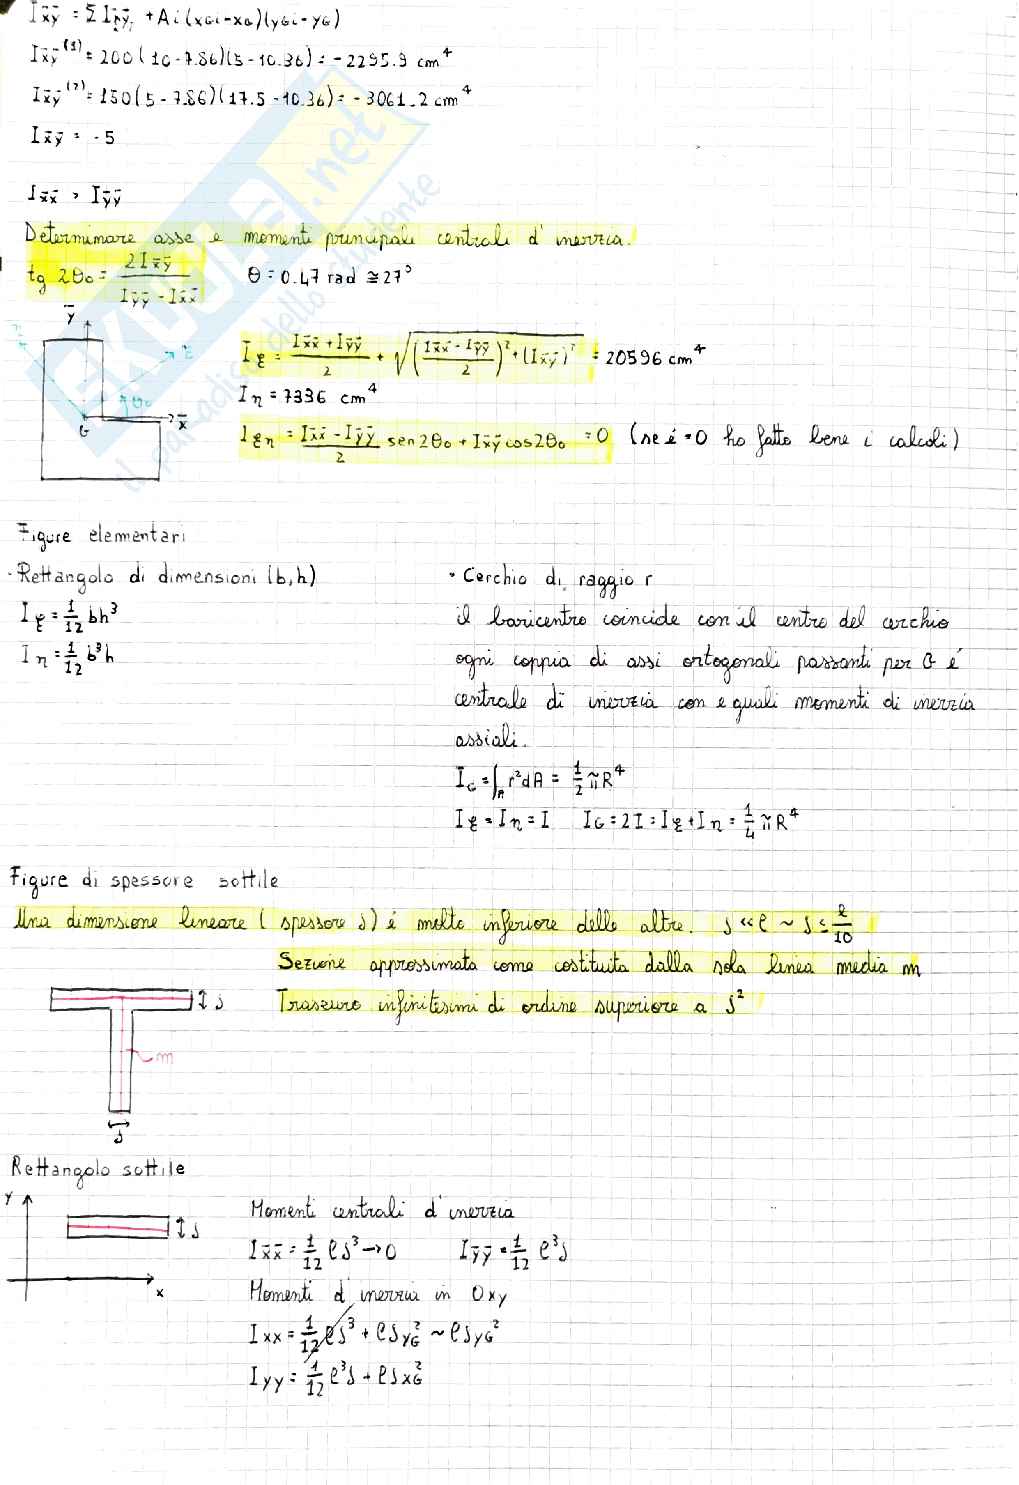 Ix̄ȳ = Σ Ix̄ȳi + Ai (xGi - xG)(yGi - yG)
Ix̄ȳ⁽¹⁾ = 200 (10 - 7.86)(5 - 10.36) = - 2295.9 cm⁴
Ix̄ȳ⁽²⁾ = 150 (5 - 7.86)(17.5 - 10.36) = - 3061.2 cm⁴
Ix̄ȳ = - 5
Ix̄x̄ > Iȳȳ
Determinare asse e momenti principali centrali d'inerzia.
tg 2θ₀ = 2Ix̄ȳ / (Iȳȳ - Ix̄x̄) θ = 0.47 rad ≅ 27°
ȳ
ξ
θ₀
x̄
G
Iξ = (Ix̄x̄ + Iȳȳ)/2 + √(((Ix̄x̄ - Iȳȳ)/2)² + (Ix̄ȳ)²) = 20596 cm⁴
Iη = 7336 cm⁴
Iξη = (Ix̄x̄ - Iȳȳ)/2 sen 2θ₀ + Ix̄ȳ cos 2θ₀ = 0 (se é = 0 ho fatto bene i calcoli)
Figure elementari
· Rettangolo di dimensioni (b,h)
Iξ = 1/12 bh³
Iη = 1/12 b³h
· Cerchio di raggio r
il baricentro coincide con il centro del cerchio
ogni coppia di assi ortogonali passanti per G é
centrale di inerzia con eguali momenti di inerzia
assiali.
IG = ∫A r² dA = 1/2 π R⁴
Iξ = Iη = I IG = 2I = Iξ + Iη = 1/4 π R⁴
Figure di spessore sottile
Una dimensione lineare (spessore s) é molto inferiore delle altre. s << l ~ s ≤ l/10
Sezione approssimata come costituita dalla sola linea media m
Trascuro infinitesimi di ordine superiore a s²
s
m
s
Rettangolo sottile
y
s
x
Momenti centrali d'inerzia
Ix̄x̄ = 1/12 l s³ → 0 Iȳȳ = 1/12 l³ s
Momenti d'inerzia in Oxy
Ixx = 1/12 l s³ + l s yG² ~ l s yG²
Iyy = 1/12 l³ s + l s xG²
SKUOLA.net
il paradiso dello studente